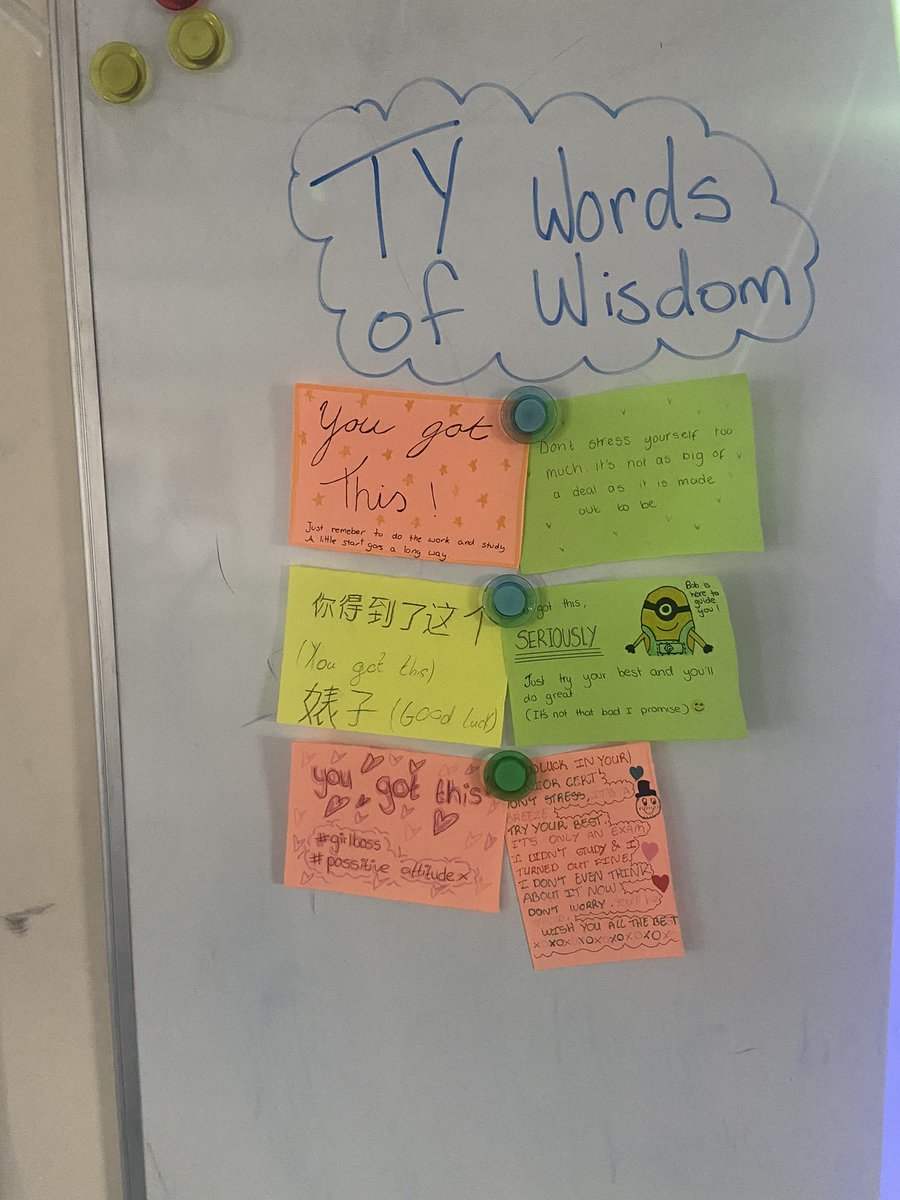 TY Words
of Wisdom
You got
This!
Just remeber to do the work and study
A little start goes a long way.
Don't stress yourself too
much. it's not as big of
a deal as it is made
out to be
你得到了这个
(You got this)
婊子 (Good luck)
got this,
SERIOUSLY
Just try your best and you'll
do great
(It's not that bad I promise)
Bob is
here to
guide
you!
you got this
#girlboss
# possitive attitude x
LUCK IN YOUR
IOR CERT
ON'T STRESS, IT'S A
BREEZE
TRY YOUR BEST.
IT'S ONLY AN EXAM
I DIDN'T STUDY & I
TURNED OUT FINE!
I DON'T EVEN THINK
ABOUT IT NOW!
DON'T WORRY.
WISH YOU ALL THE BEST
XOXOXOXOXOXOXOX